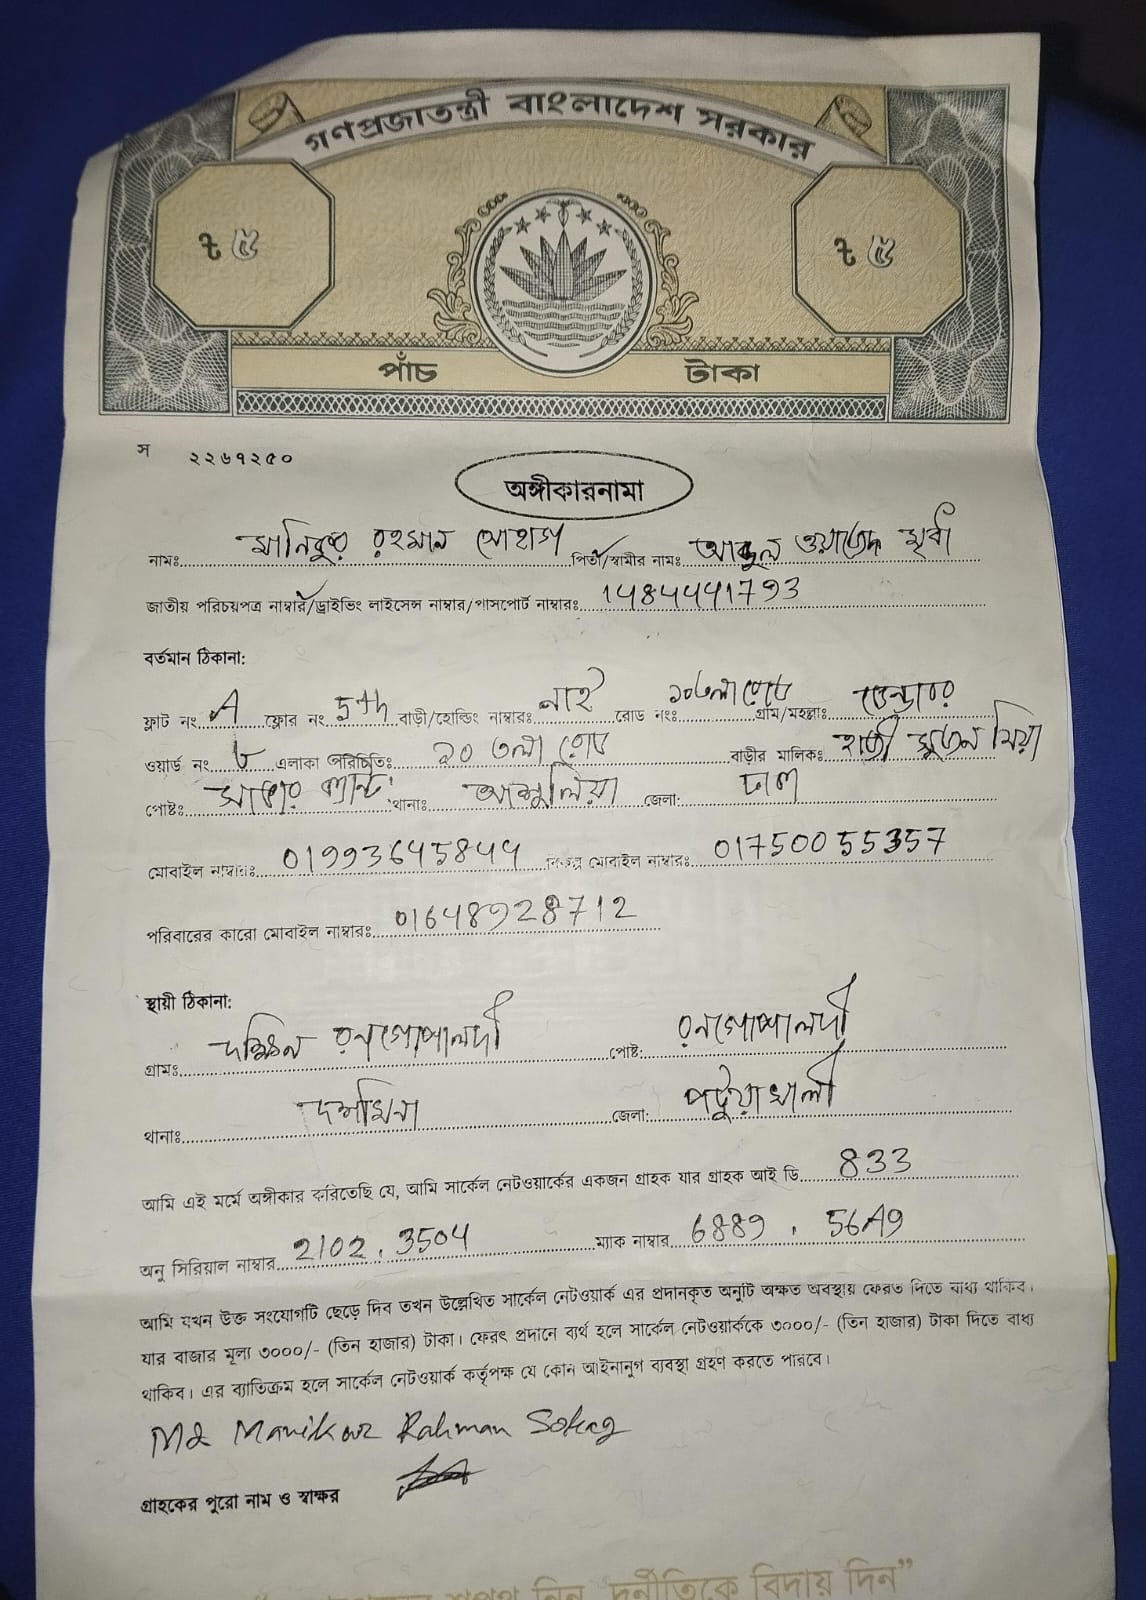 গণপ্রজাতন্ত্রী বাংলাদেশ সরকার
৳ ৫ ৳ ৫
পাঁচ টাকা
স ২২৬৭২৫০
অঙ্গীকারনামা
নামঃ মানিকুর রহমান সোহাগ পিতা/স্বামীর নামঃ আব্দুল ওয়াজেদ মৃধা
জাতীয় পরিচয়পত্র নাম্বার/ড্রাইভিং লাইসেন্স নাম্বার/পাসপোর্ট নাম্বারঃ 1484441793
বর্তমান ঠিকানা:
ফ্লাট নং A ফ্লোর নং 5th বাড়ী/হোল্ডিং নাম্বারঃ নাই রোড নং ১০তলা রোড গ্রাম/মহল্লাঃ
ওয়ার্ড নং এলাকা পরিচিতিঃ ১০ তলা রোড বাড়ীর মালিকঃ হাজী মিয়া
পোষ্টঃ সাভার ক্যান্ট: থানাঃ আশুলিয়া জেলা: ঢাকা
মোবাইল নাম্বারঃ 01993645844 বিকল্প মোবাইল নাম্বারঃ 01750055357
পরিবারের কারো মোবাইল নাম্বারঃ 01648928712
স্থায়ী ঠিকানা:
গ্রামঃ দক্ষিন রনগোপালদী পোষ্ট: রনগোপালদী
থানাঃ দশমিনা জেলা: পটুয়াখালী
আমি এই মর্মে অঙ্গীকার করিতেছি যে, আমি সার্কেল নেটওয়ার্কের একজন গ্রাহক যার গ্রাহক আই ডি 833
অনু সিরিয়াল নাম্বার 2102.3504 ম্যাক নাম্বার 6889.56A9
আমি যখন উক্ত সংযোগটি ছেড়ে দিব তখন উল্লেখিত সার্কেল নেটওয়ার্ক এর প্রদানকৃত অনুটি অক্ষত অবস্থায় ফেরত দিতে বাধ্য থাকিব।
যার বাজার মূল্য ৩০০০/- (তিন হাজার) টাকা। ফেরৎ প্রদানে ব্যর্থ হলে সার্কেল নেটওয়ার্ককে ৩০০০/- (তিন হাজার) টাকা দিতে বাধ্য
থাকিব। এর ব্যতিক্রম হলে সার্কেল নেটওয়ার্ক কর্তৃপক্ষ যে কোন আইনানুগ ব্যবস্থা গ্রহণ করতে পারবে।
Md Manikur Rahman Sohag
গ্রাহকের পুরো নাম ও স্বাক্ষর
নিন, দুর্নীতিকে বিদায় দিন”